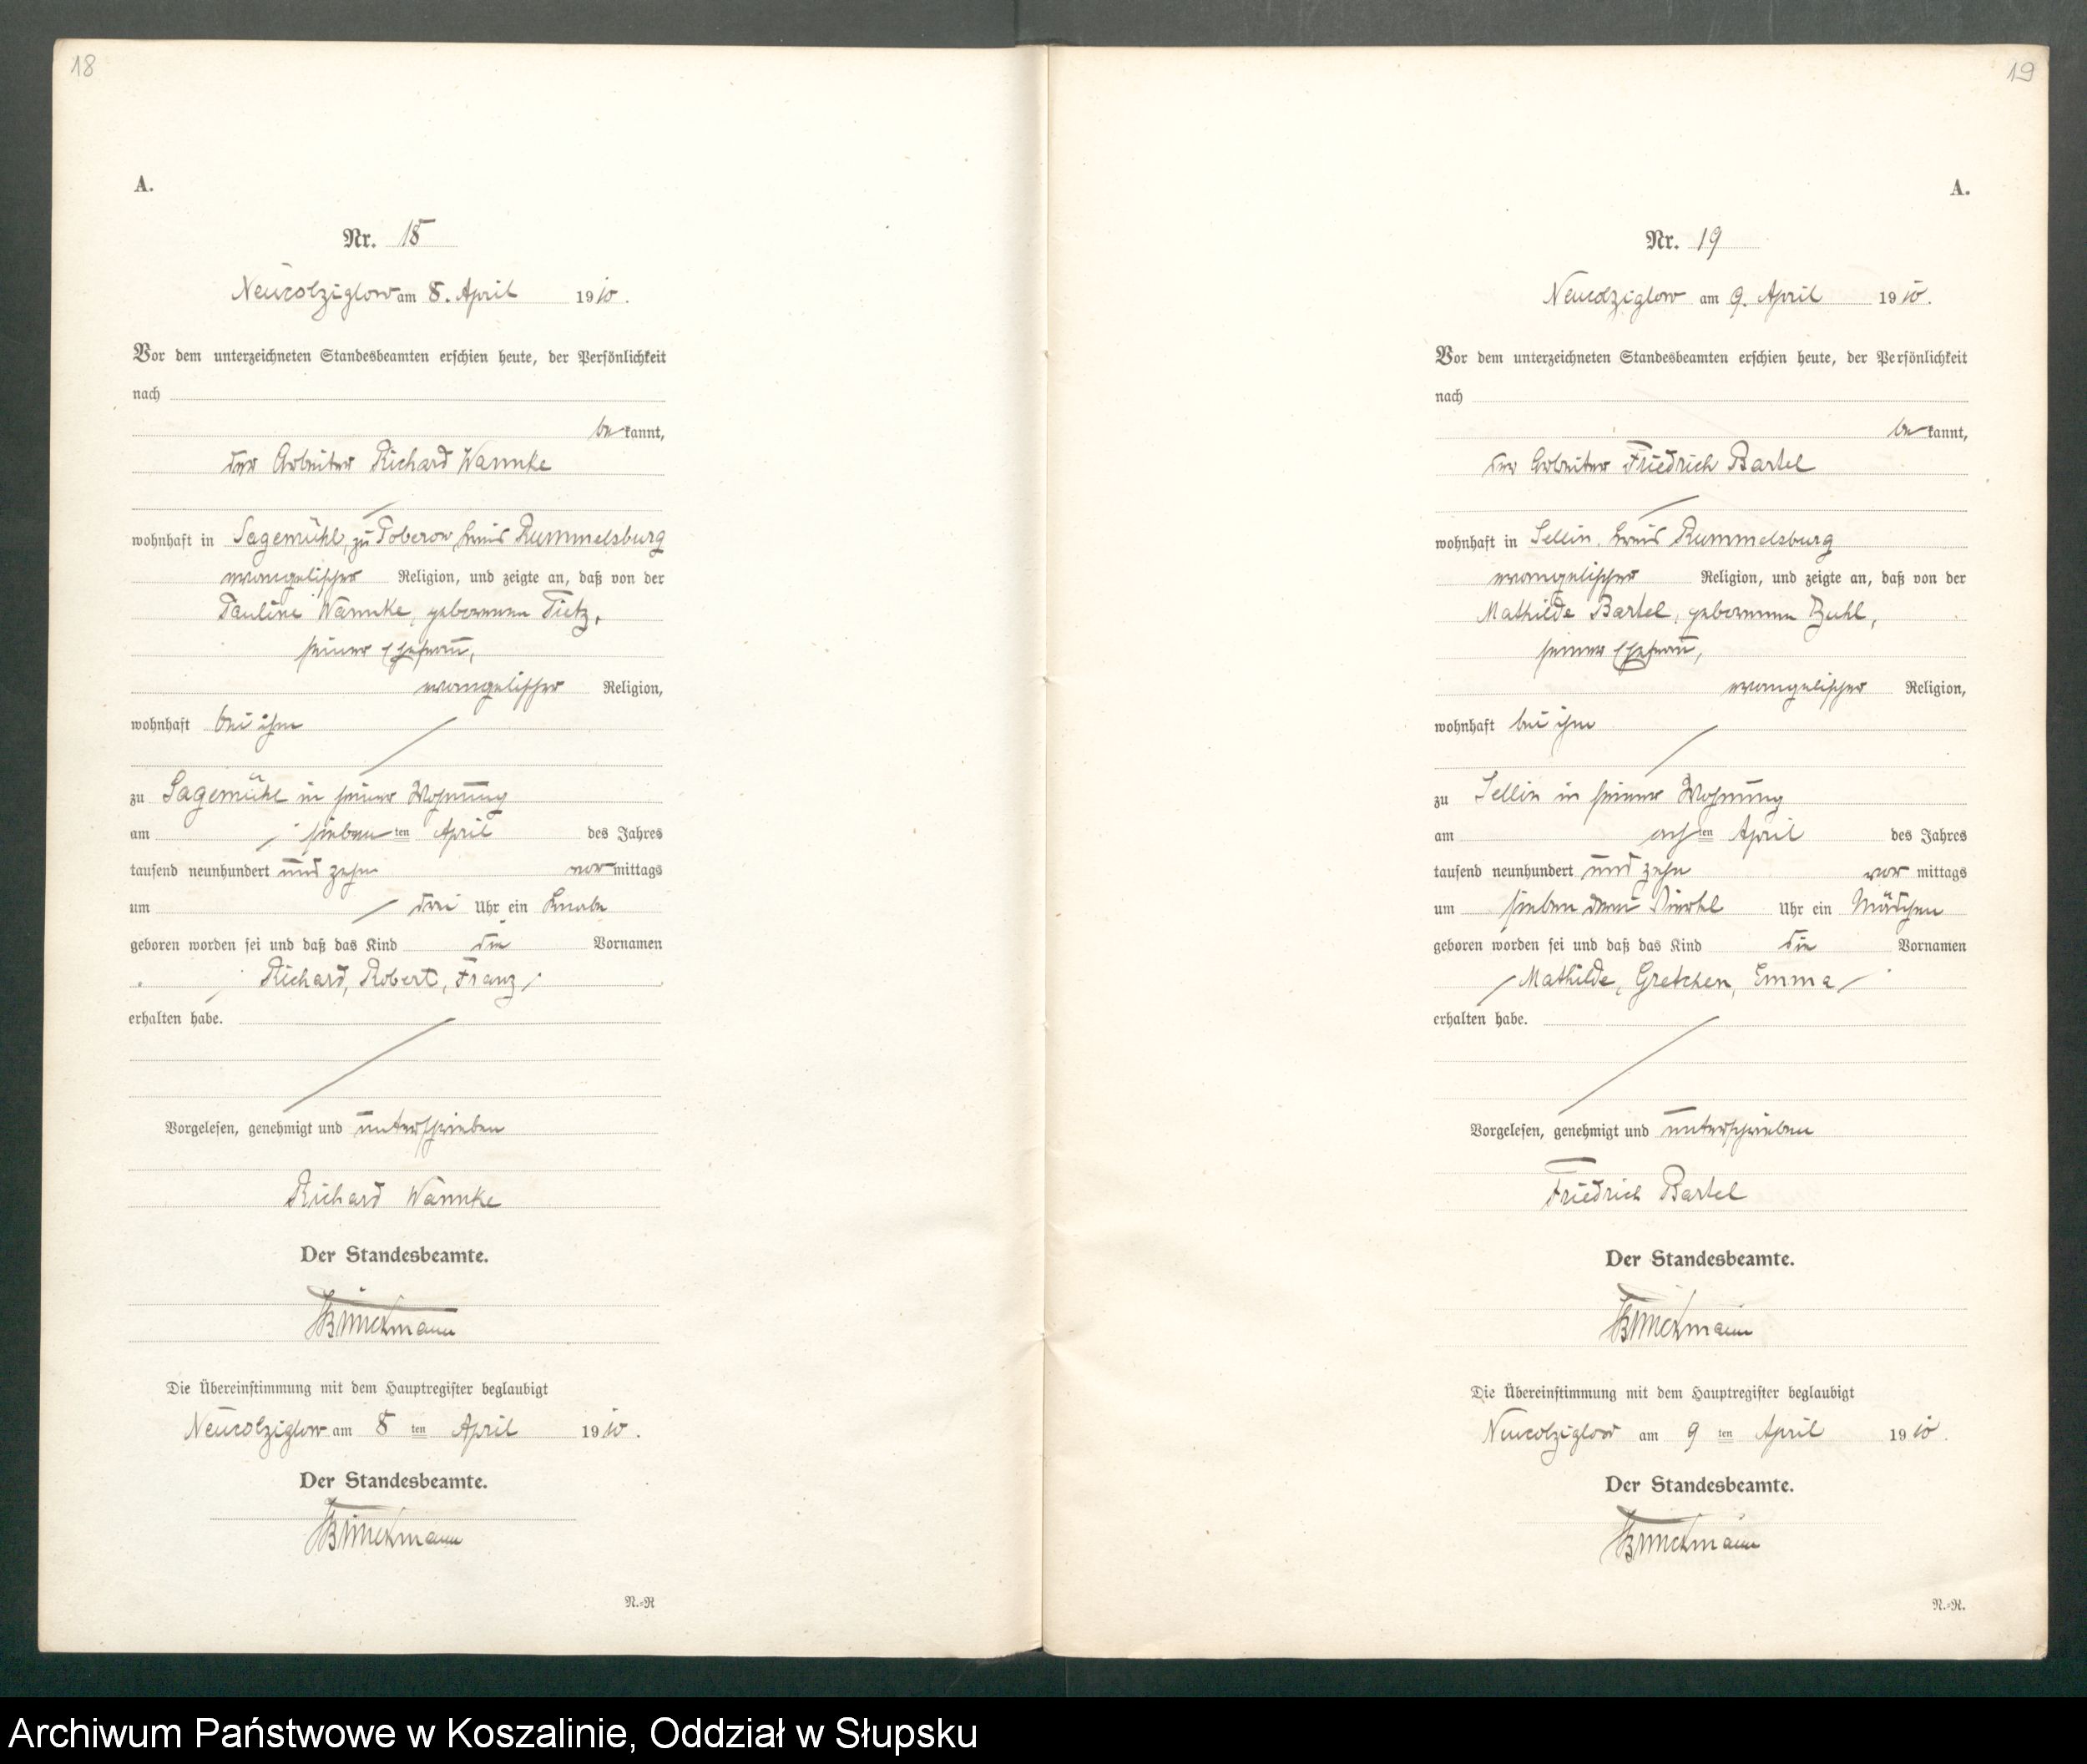 18
A.
Nr. 18
Neucolziglow am 8. April 1910.
Vor dem unterzeichneten Standesbeamten erschien heute, der Persönlichkeit
nach
bekannt,
der Arbeiter Richard Wannke
wohnhaft in Sagemühl, zu Poberow, Kreis Rummelsburg
evangelischer Religion, und zeigte an, daß von der
Pauline Wannke, geborenen Tietz,
seiner Ehefrau,
evangelischer Religion,
wohnhaft bei ihm
zu Sagemühl in seiner Wohnung
am siebenten April des Jahres
tausend neunhundert und zehn vormittags
um drei Uhr ein Knabe
geboren worden sei und daß das Kind die Vornamen
Richard, Robert, Franz
erhalten habe.
Vorgelesen, genehmigt und unterschrieben
Richard Wannke
Der Standesbeamte.
Brinckmann
Die Übereinstimmung mit dem Hauptregister beglaubigt
Neucolziglow am 8 ten April 1910.
Der Standesbeamte.
Brinckmann
N.=R
19
A.
Nr. 19
Neucolziglow am 9. April 1910.
Vor dem unterzeichneten Standesbeamten erschien heute, der Persönlichkeit
nach
bekannt,
der Arbeiter Friedrich Bartel
wohnhaft in Sellin, Kreis Rummelsburg
evangelischer Religion, und zeigte an, daß von der
Mathilde Bartel, geborenen Buhl,
seiner Ehefrau,
evangelischer Religion,
wohnhaft bei ihm
zu Sellin in seiner Wohnung
am achten April des Jahres
tausend neunhundert und zehn vor mittags
um sieben drei Viertel Uhr ein Mädchen
geboren worden sei und daß das Kind die Vornamen
Mathilde, Gretchen, Emma
erhalten habe.
Vorgelesen, genehmigt und unterschrieben
Friedrich Bartel
Der Standesbeamte.
Brinckmann
Die Übereinstimmung mit dem Hauptregister beglaubigt
Neucolziglow am 9 ten April 1910.
Der Standesbeamte.
Brinckmann
N.=R.
Archiwum Państwowe w Koszalinie, Oddział w Słupsku